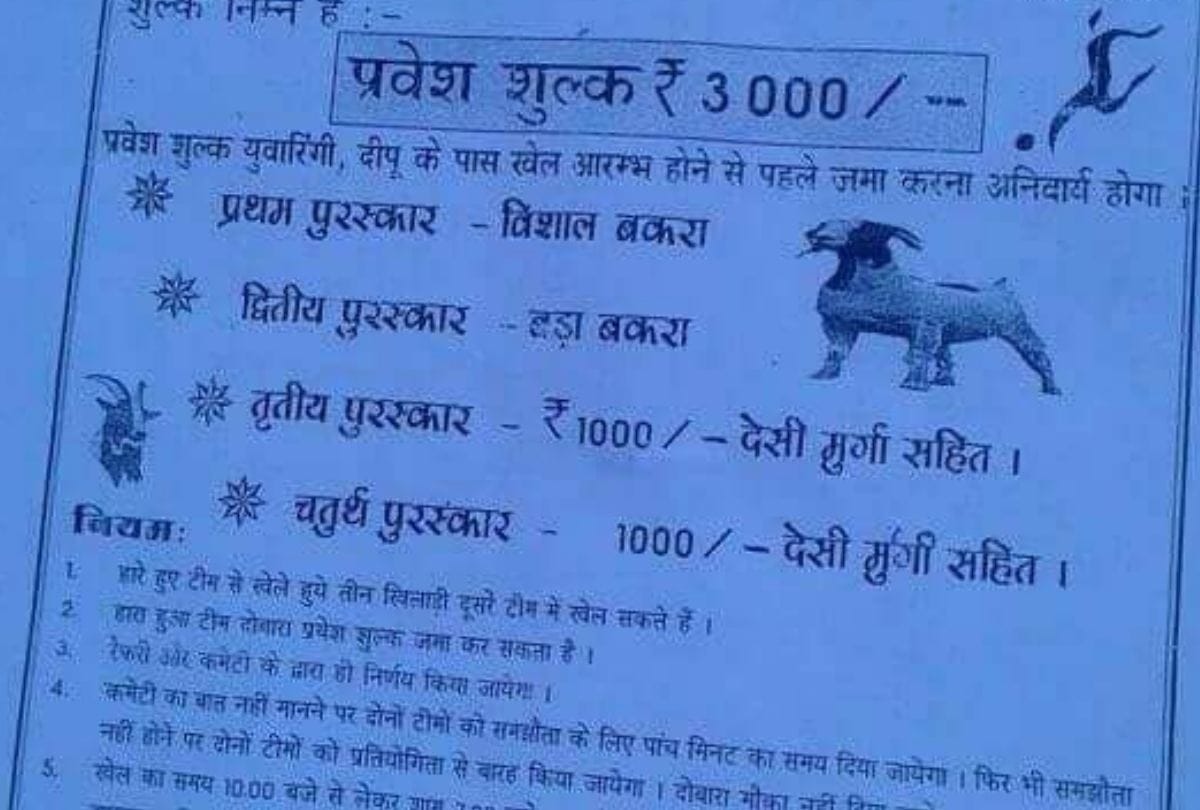 शुल्क निम्न है :–
प्रवेश शुल्क ₹ 3000 / --
प्रवेश शुल्क युवारिंगी, दीपू के पास खेल आरम्भ होने से पहले जमा करना अनिदार्य होगा ।
प्रथम पुरस्कार - विशाल बकरा
द्वितीय पुरस्कार - बड़ा बकरा
तृतीय पुरस्कार - ₹ 1000 / - देसी मुर्गा सहित ।
चतुर्थ पुरस्कार - 1000 / - देसी मुर्गी सहित ।
नियम:
1. हारे हुए टीम से खेले हुये तीन खिलाड़ी दूसरे टीम में खेल सकते हैं ।
2. हारा हुआ टीम दोबारा प्रवेश शुल्क जमा कर सकता है ।
3. रेफरी और कमेटी के द्वारा ही निर्णय किया जायेगा ।
4. कमेटी का बात नहीं मानने पर दोनों टीमों को समझौता के लिए पांच मिनट का समय दिया जायेगा । फिर भी समझौता
नहीं होने पर दोनों टीमों को प्रतियोगिता से बारह किया जायेगा । दोबारा मौका नहीं दिया
5. खेल का समय 10.00 बजे से लेकर शाम